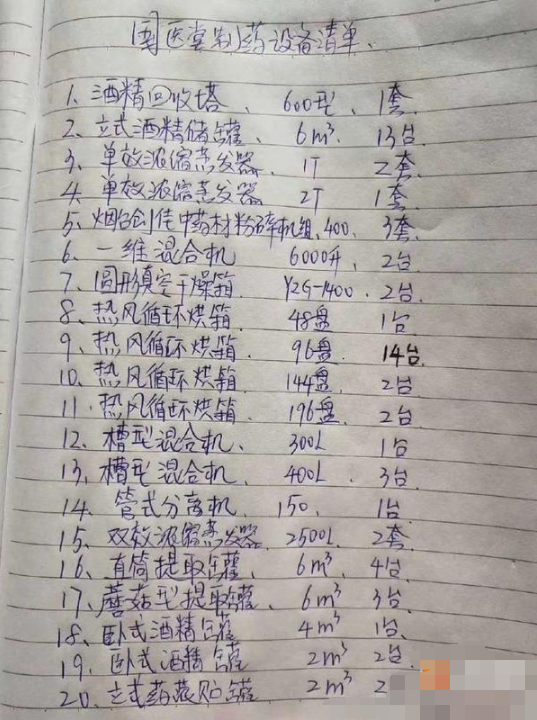 国医堂制药设备清单.
1、酒精回收塔、 600型、 1套.
2、立式酒精储罐、 6m³、 13台
3、单效浓缩蒸发器、 1T 2套.
4、单效浓缩蒸发器 2T 1套.
5、烟台创佳中药材粉碎机组.400. 3套.
6、一维混合机 6000升、 2台.
7、圆形真空干燥箱 YZG-1400. 2台.
8、热风循环烘箱 48盘 1台
9、热风循环烘箱 96盘. 14台.
10、热风循环烘箱 144盘 2台
11、热风循环烘箱 196盘. 2台
12、槽型混合机、 300L 1台
13、槽型混合机、 400L. 3台.
14、管式分离机、 150. 1台.
15、双效浓缩蒸发器. 2500L. 2套.
16、直筒提取罐、 6m³、 4台.
17、蘑菇型提取罐、 6m³、 3台.
18、卧式酒精罐 4m³ 1台.
19、卧式酒精罐 2m³ 2台.
20、立式药液贮罐 2m³ 2